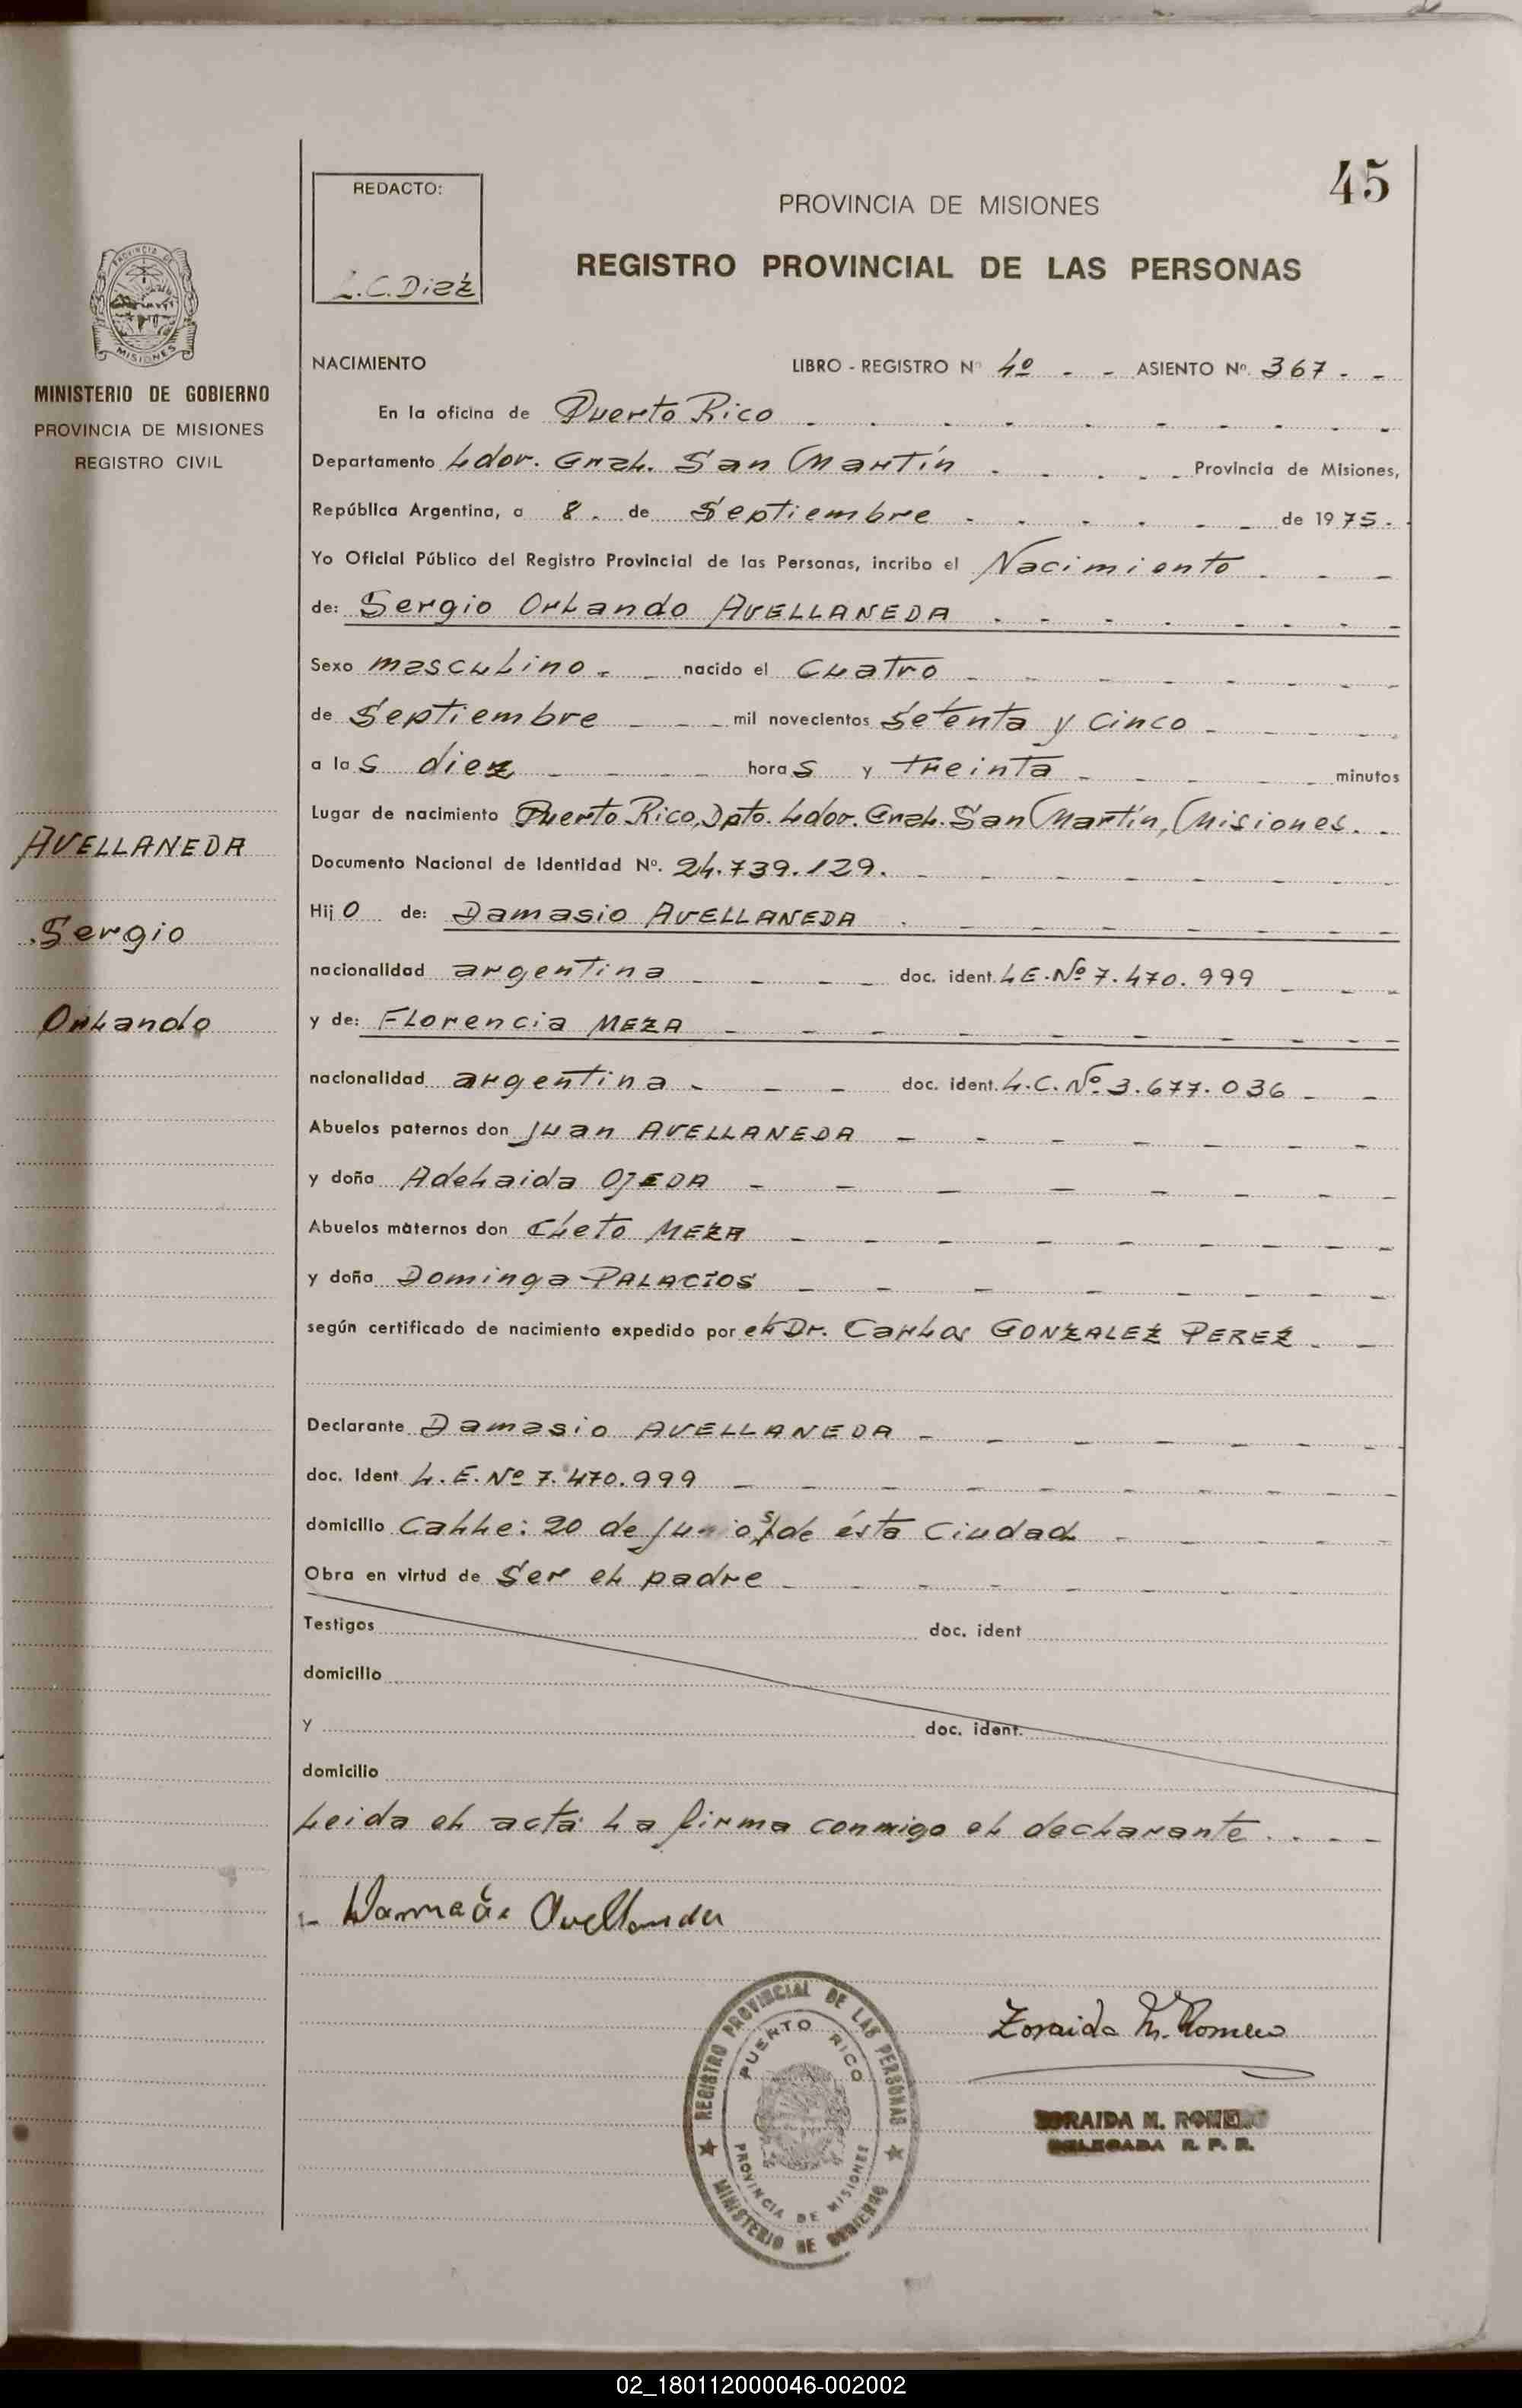 45
REDACTO:
L.C. Diéz
PROVINCIA DE MISIONES
REGISTRO PROVINCIAL DE LAS PERSONAS
PROVINCIA DE
MISIONES
MINISTERIO DE GOBIERNO
PROVINCIA DE MISIONES
REGISTRO CIVIL
AVELLANEDA
Sergio
Orlando
NACIMIENTO LIBRO - REGISTRO Nº 4º - - ASIENTO Nº. 367 - -
En la oficina de Puerto Rico
Departamento Ldor. Gral. San Martín Provincia de Misiones,
República Argentina, a 8. de Septiembre de 1975.
Yo Oficial Público del Registro Provincial de las Personas, incribo el Nacimiento
de: Sergio Orlando AVELLANEDA
Sexo masculino. nacido el Cuatro
de Septiembre mil novecientos Setenta y Cinco
a las diez horas y treinta minutos
Lugar de nacimiento Puerto Rico, Dpto. Ldor. Gral. San Martín, Misiones.
Documento Nacional de Identidad Nº. 24.739.129.
Hijo de: Damasio AVELLANEDA
nacionalidad argentina doc. ident. L.E.Nº 7.470.999
y de: Florencia MEZA
nacionalidad argentina doc. ident. L.C. Nº. 3.677.036
Abuelos paternos don Juan AVELLANEDA
y doña Adelaida OJEDA
Abuelos maternos don Cleto MEZA
y doña Dominga PALACIOS
según certificado de nacimiento expedido por el Dr. Carlos GONZALEZ PEREZ
Declarante Damasio AVELLANEDA
doc. Ident L.E. Nº 7.470.999
domicilio Calle: 20 de Junio s/ de ésta Ciudad
Obra en virtud de Ser el padre
Testigos doc. ident
domicilio
y doc. ident.
domicilio
Leida el acta la firma conmigo el declarante
Avellaneda
Zoraida M. Romero
ZORAIDA M. ROMERO
DELEGADA R. P. P.
REGISTRO PROVINCIAL DE LAS PERSONAS
PUERTO RICO
PROVINCIA DE MISIONES
MINISTERIO DE GOBIERNO
02_180112000046-002002